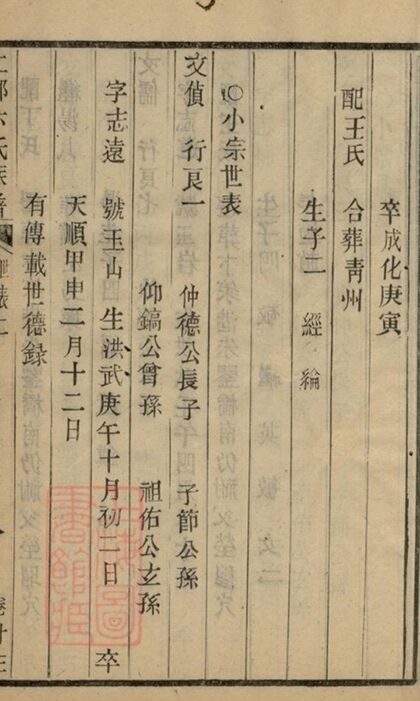 卒成化庚寅
配王氏 合葬青州
生子二 經 綸
○小宗世表
文偵 行艮一 仲德公長子 子節公孫
仰鎬公曾孫 祖佑公玄孫
字志遠 號玉山 生洪武庚午十月初二日 卒
天順甲申二月十二日
有傳載世德錄